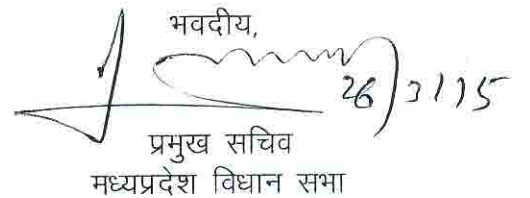 भवदीय,
26/3/15
प्रमुख सचिव
मध्यप्रदेश विधान सभा